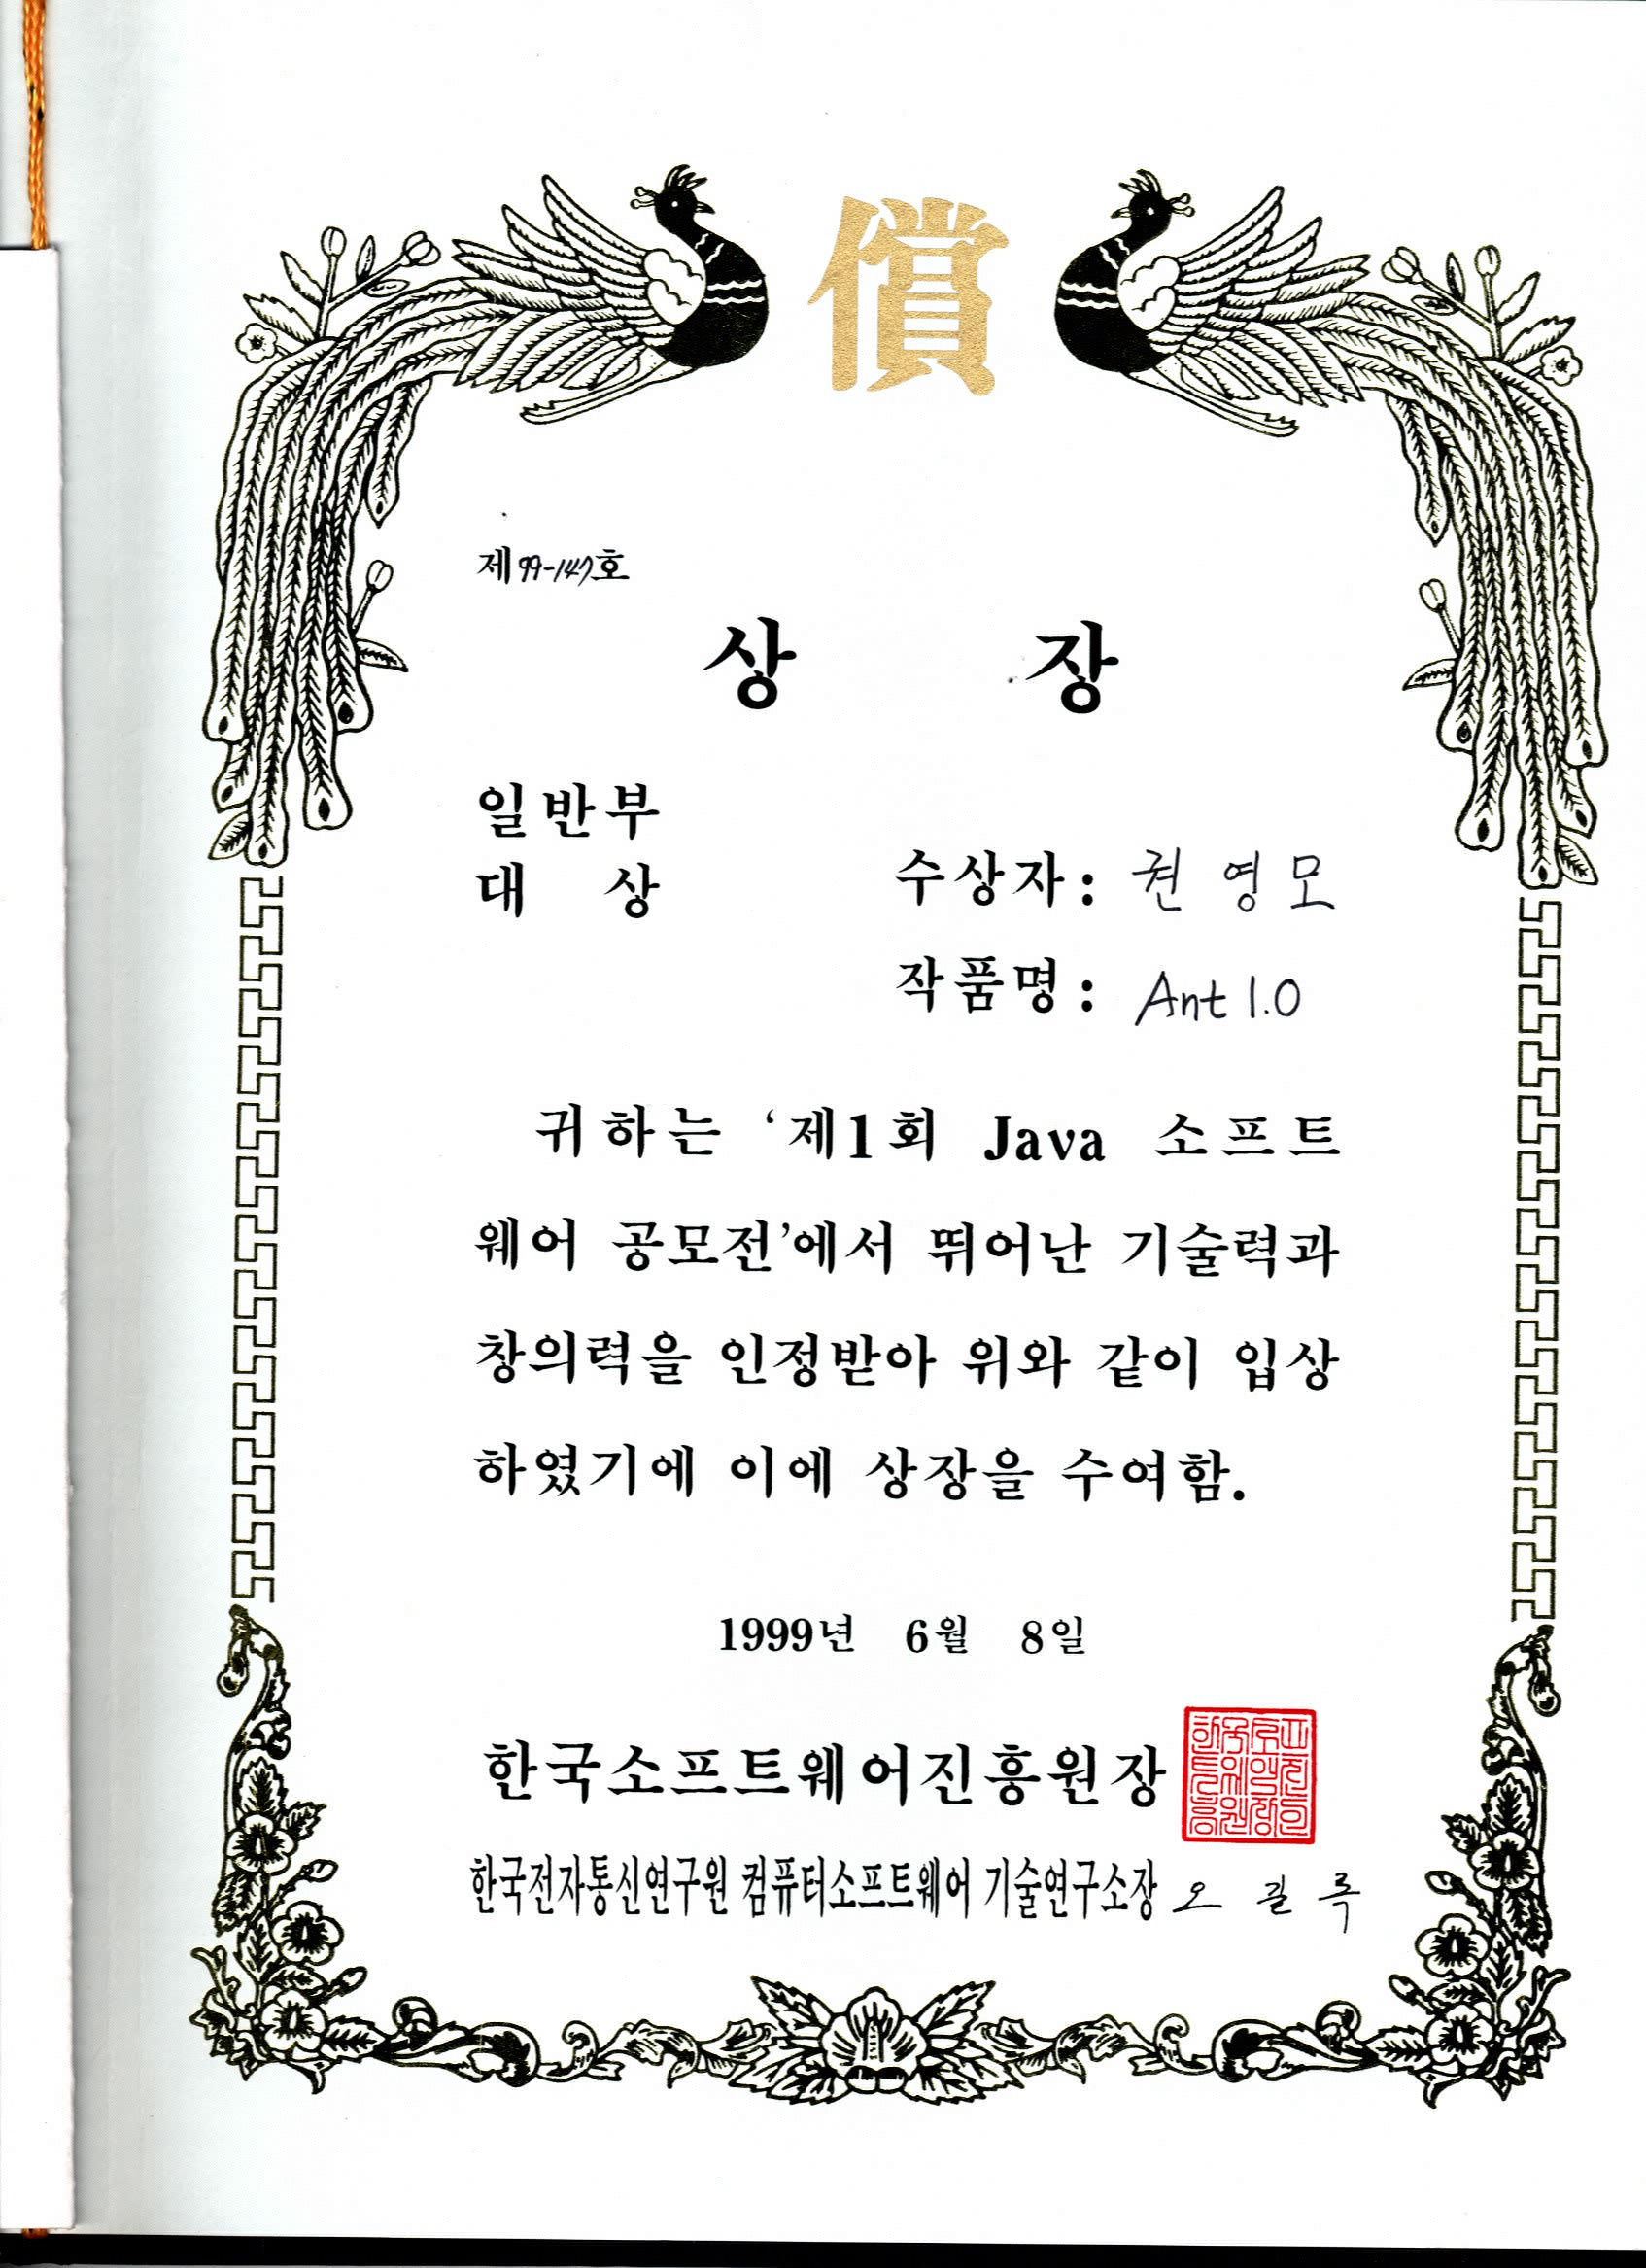 償
제 99-147호
상 장
일반부
대 상
수상자 : 권 영 모
작품명 : Ant 1.0
귀하는 ‘제1회 Java 소프트
웨어 공모전’에서 뛰어난 기술력과
창의력을 인정받아 위와 같이 입상
하였기에 이에 상장을 수여함.
1999년 6월 8일
한국소프트웨어진흥원장
한국전자통신연구원 컴퓨터소프트웨어 기술연구소장 오 길 록